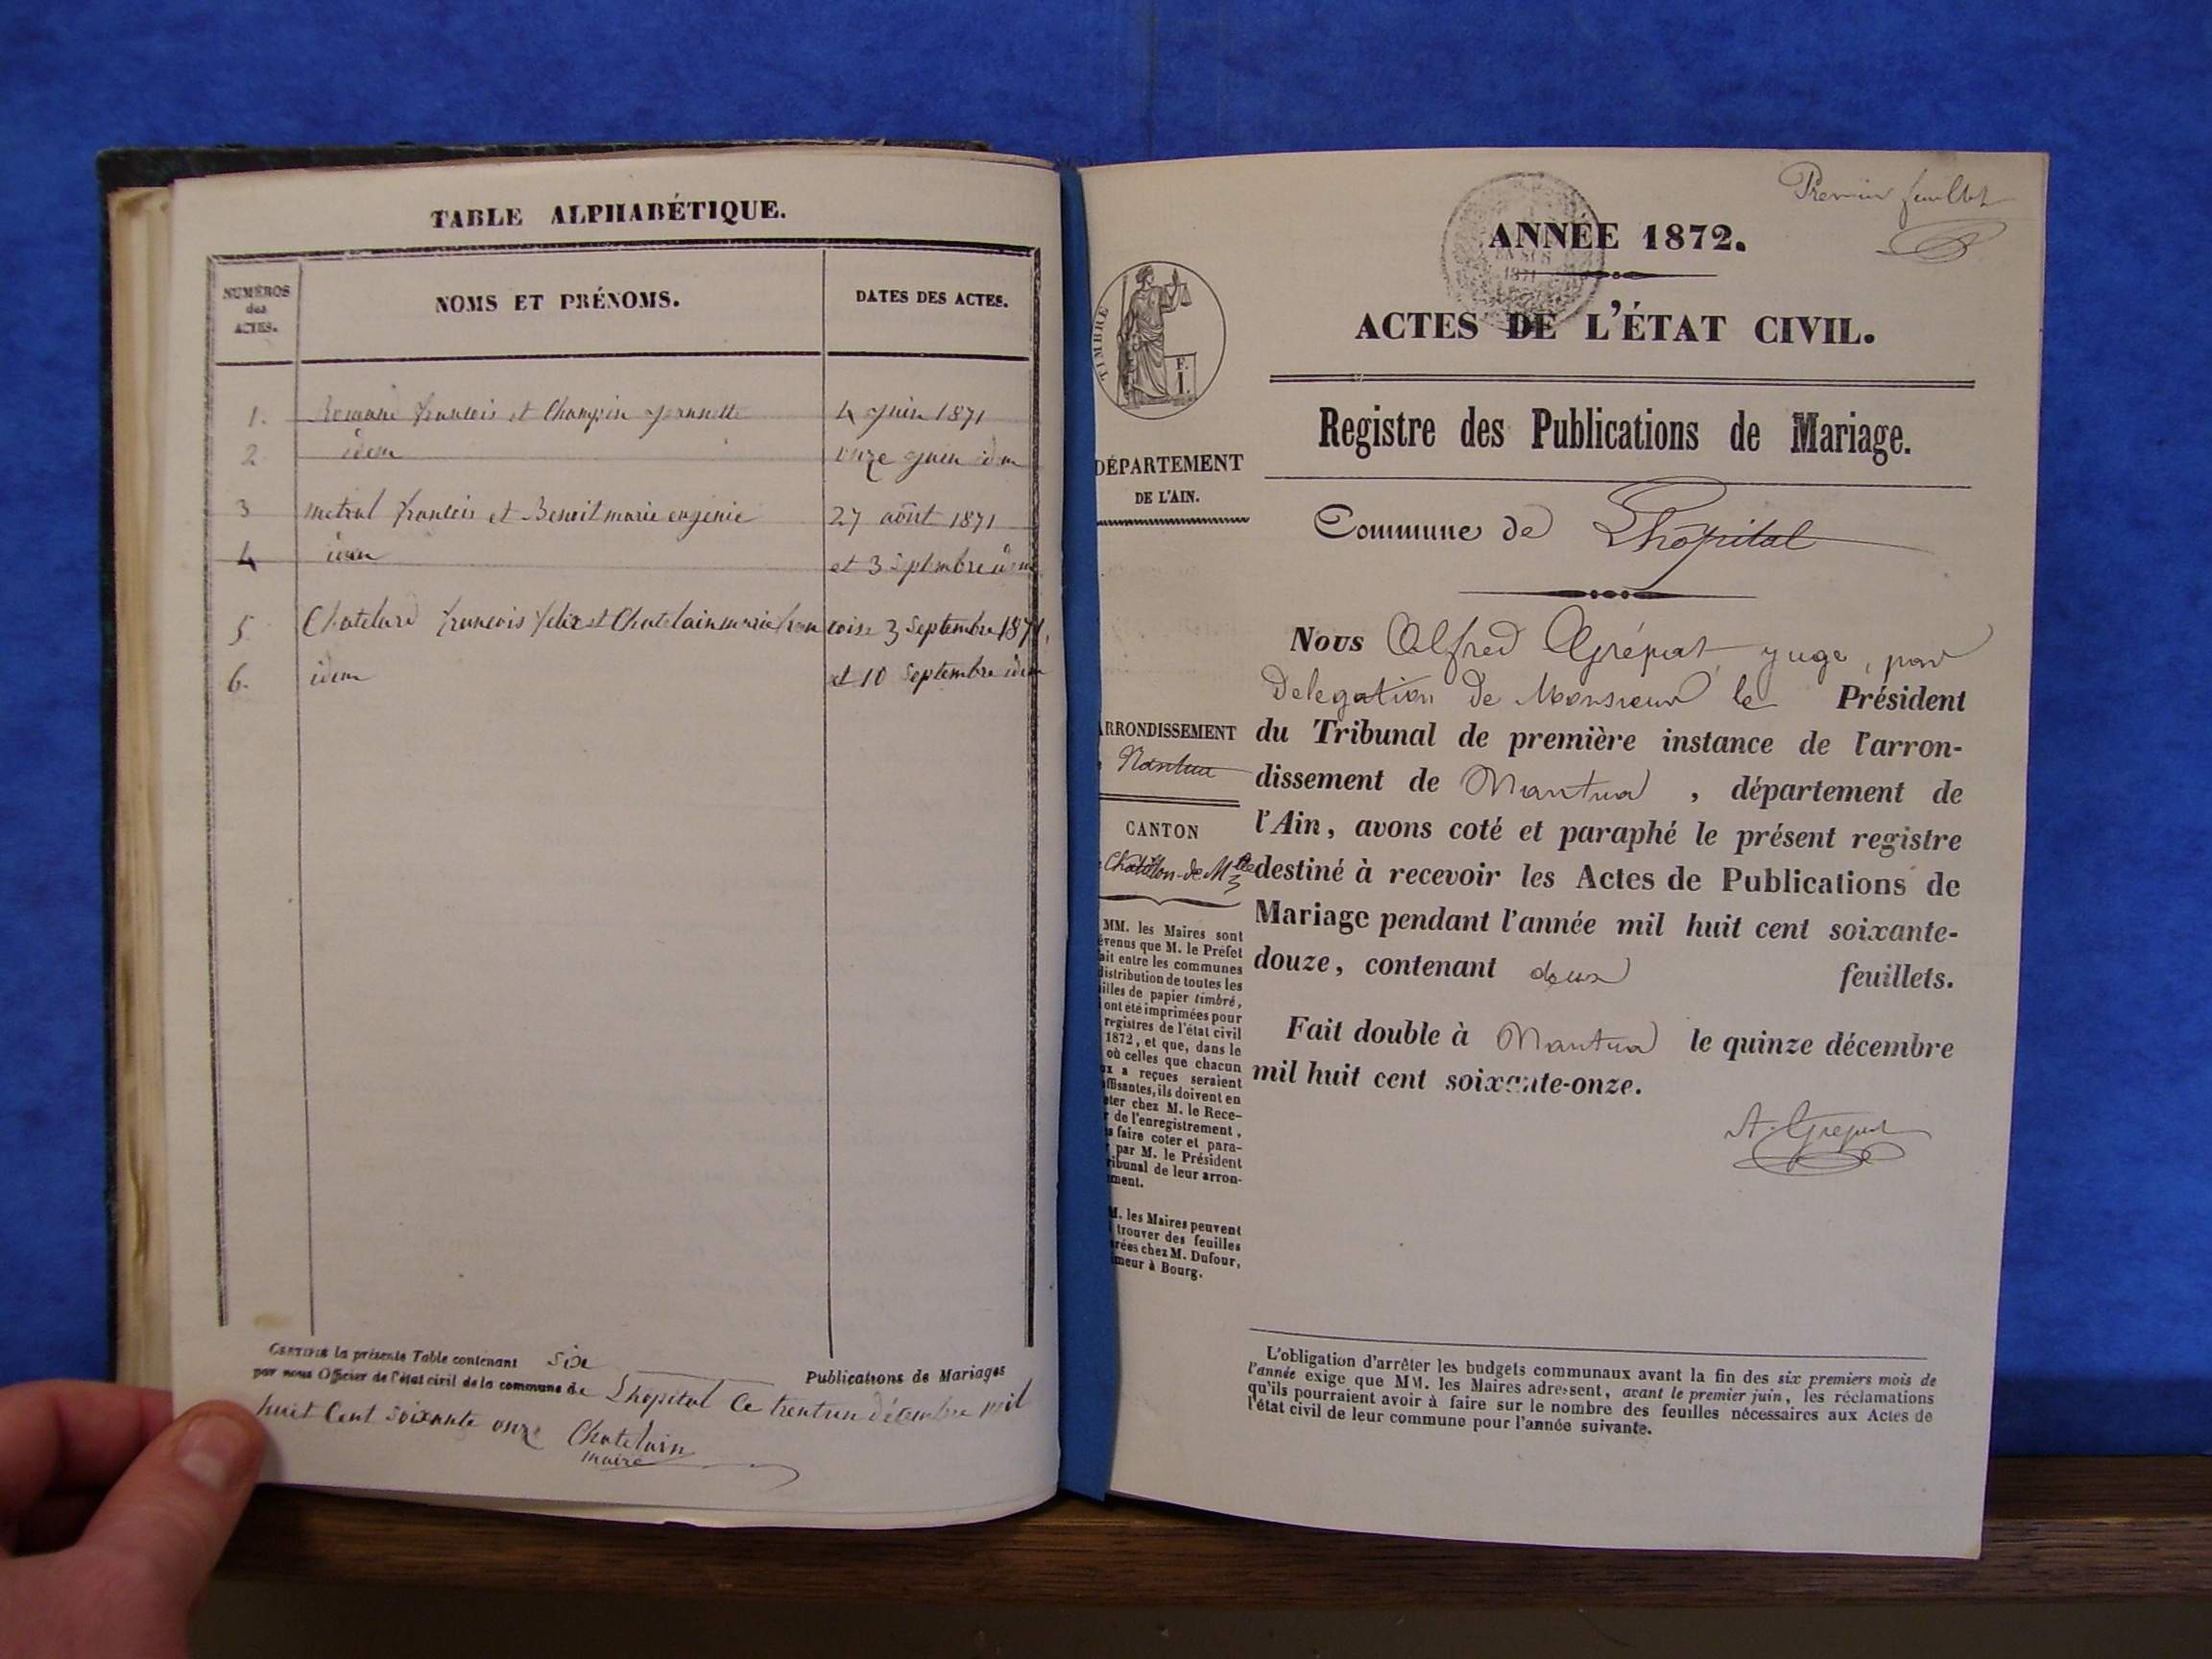 TABLE ALPHABÉTIQUE.
NUMÉROS
des
ACTES.
NOMS ET PRÉNOMS.
DATES DES ACTES.
1. françois et Champin jeannette 4 juin 1871
2 idem onze juin idem
3 metral françois et Benoit marie eugenie 27 août 1871
4 idem et 3 septembre idem
5. Chatelard francois felix et Chatelain marie francoise 3 Septembre 1871,
6. idem et 10 Septembre idem
CERTIFIÉ la présente Table contenant six Publications de Mariages
par nous Officier de l'état civil de la commune de Lhopital Ce trentun décembre mil
huit Cent soixante onze Chatelain
maire
Premier feuillet
ANNÉE 1872.
ACTES DE L'ÉTAT CIVIL.
Registre des Publications de Mariage.
Commune de Lhôpital
TIMBRE
F.
1.
DÉPARTEMENT
DE L'AIN.
ARRONDISSEMENT
Nantua
CANTON
Chatillon-de-M
MM. les Maires sont
évenus que M. le Préfet
ait entre les communes
distribution de toutes les
illes de papier timbré,
ont été imprimées pour
registres de l'état civil
1872, et que, dans le
où celles que chacun
ux a reçues seraient
ffisantes, ils doivent en
eter chez M. le Rece-
r de l'enregistrement,
s faire coter et para-
r par M. le Président
ribunal de leur arron-
ment.
M. les Maires peuvent
trouver des feuilles
rées chez M. Dufour,
meur à Bourg.
Nous Alfred Grépat, juge, par
Delegation de Monsieur le Président
du Tribunal de première instance de l'arron-
dissement de Nantua , département de
l'Ain, avons coté et paraphé le présent registre
destiné à recevoir les Actes de Publications de
Mariage pendant l'année mil huit cent soixante-
douze, contenant deux feuillets.
Fait double à Nantua le quinze décembre
mil huit cent soixante-onze.
A. Grepat
L'obligation d'arrêter les budgets communaux avant la fin des six premiers mois de
l'année exige que MM. les Maires adressent, avant le premier juin, les réclamations
qu'ils pourraient avoir à faire sur le nombre des feuilles nécessaires aux Actes de
l'état civil de leur commune pour l'année suivante.